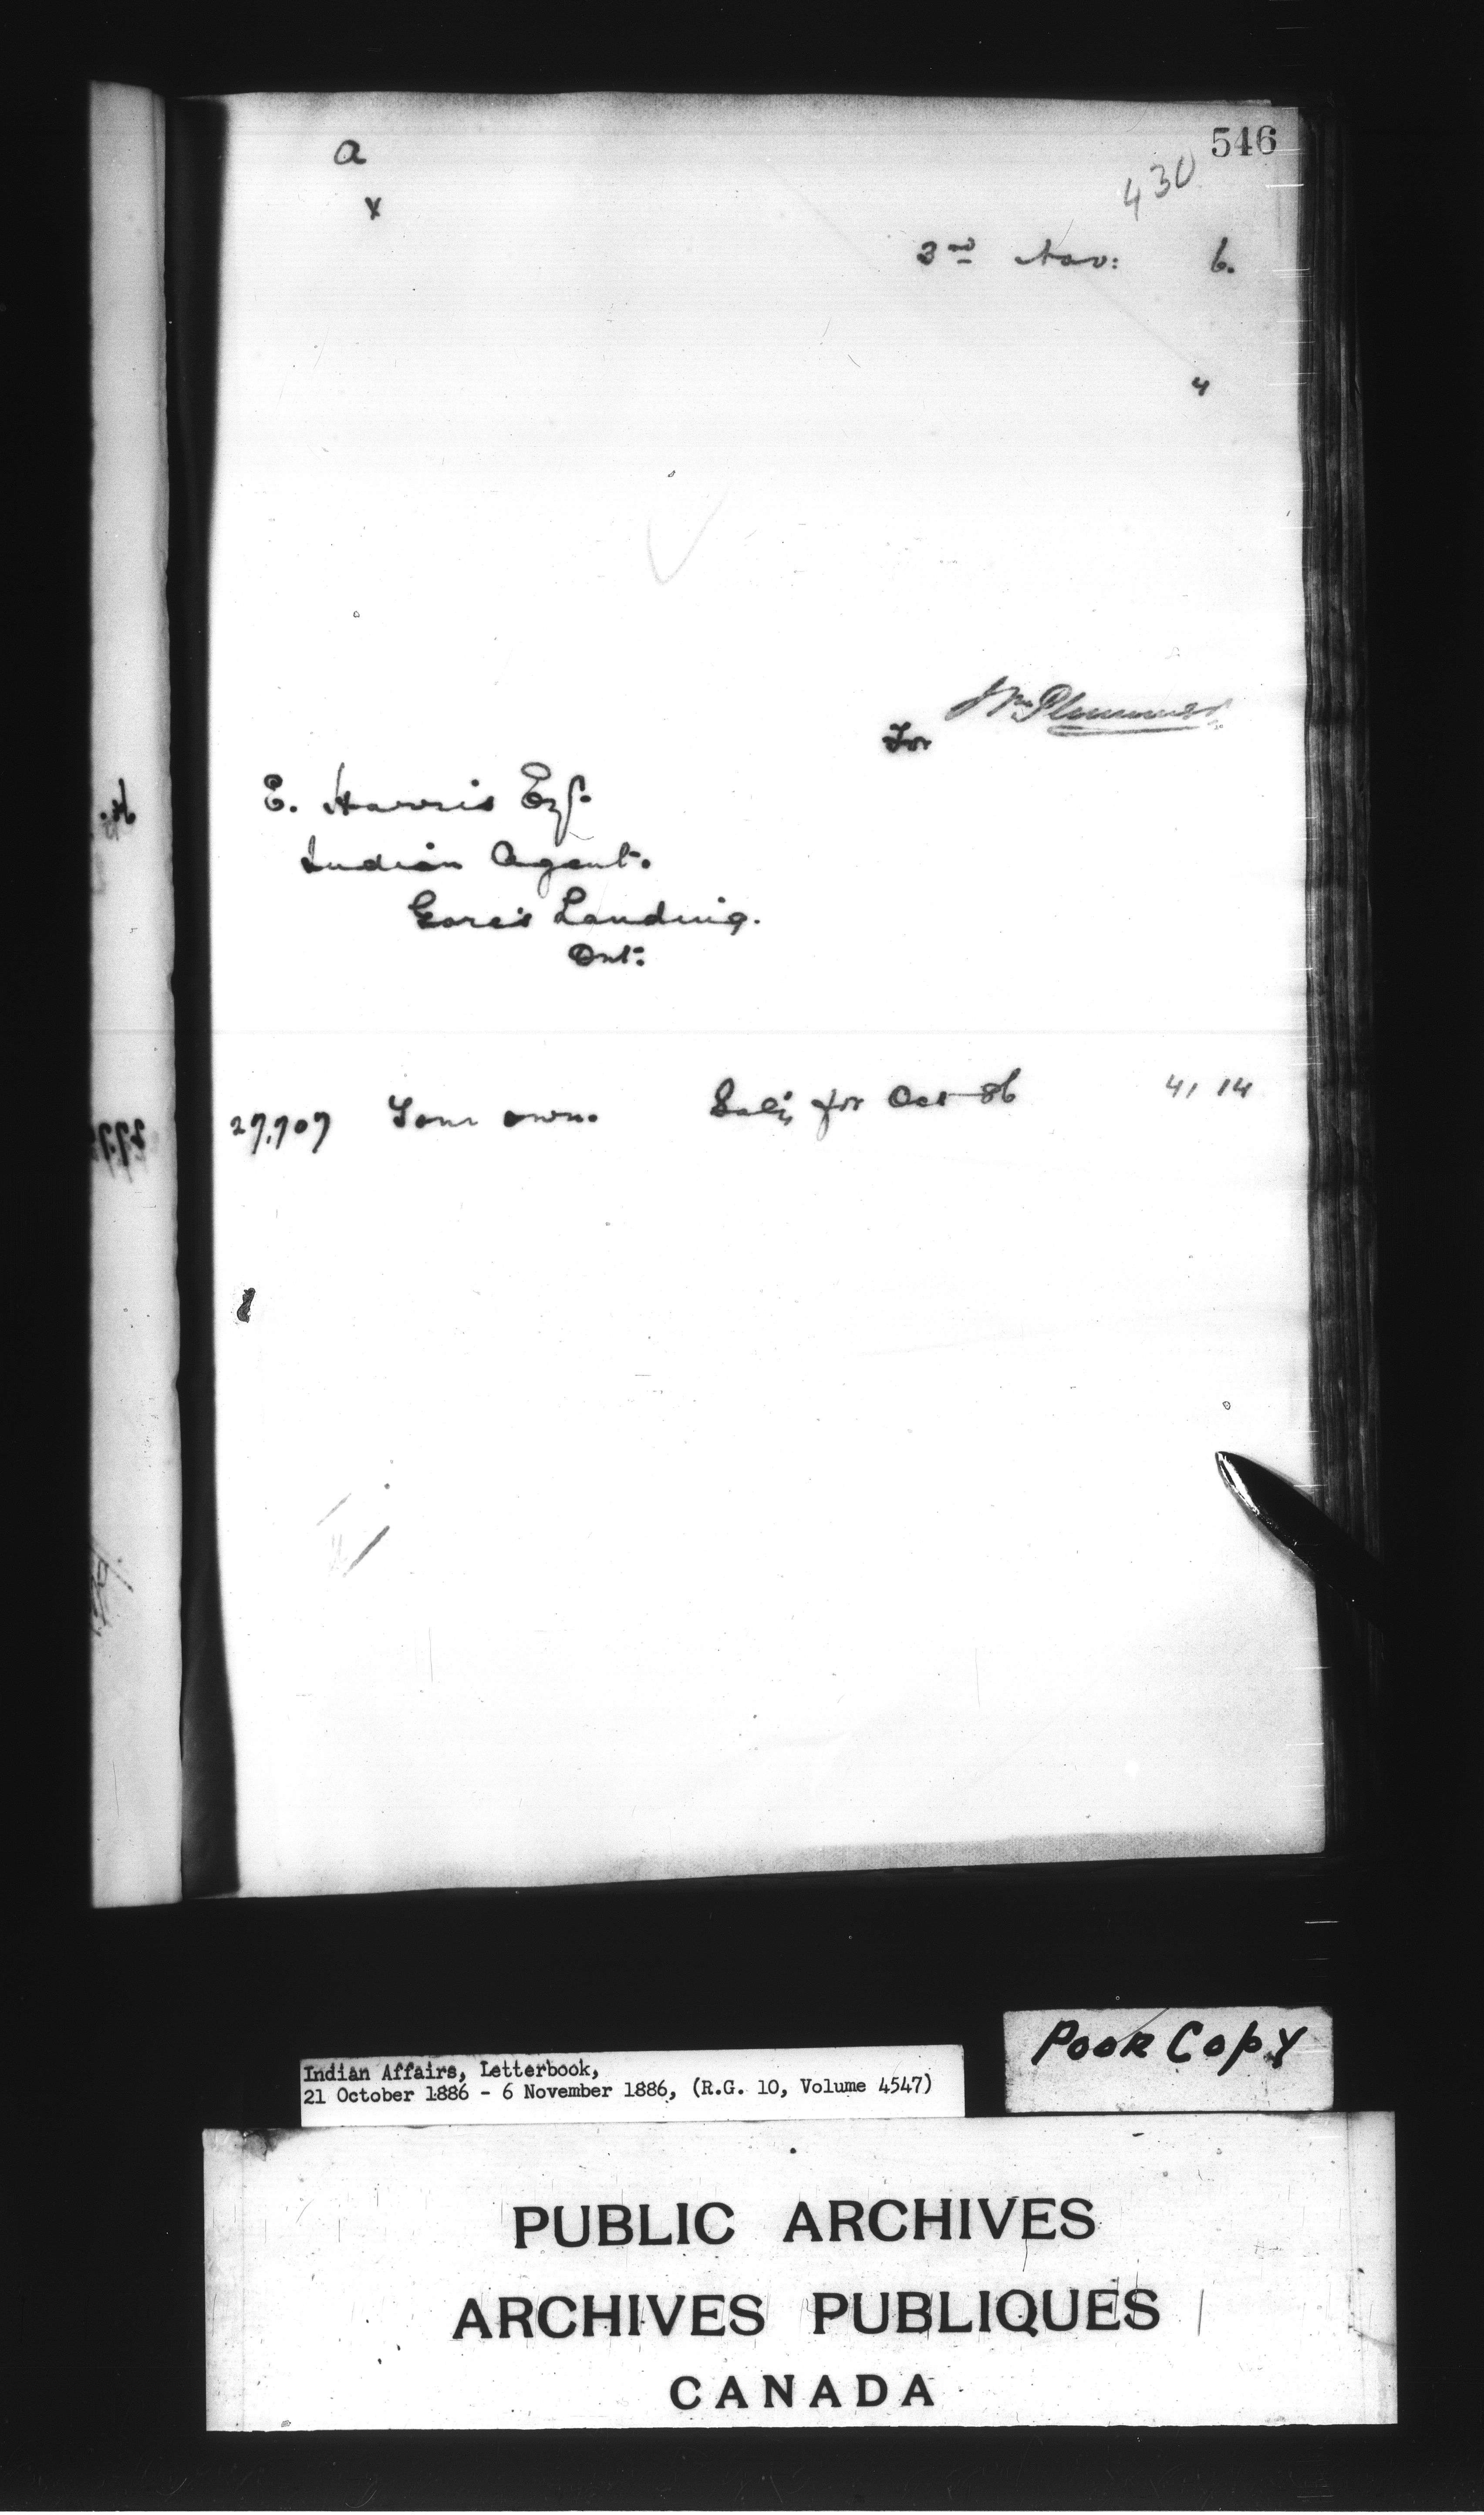 546
a
430
x
3rd Nov: 6.
4
Wm Plummer
For
E. Harris Esq.
Indian Agent.
Gore's Landing.
Ont:
27,707 Your own. Saly for Oct 86 41 14
Poor Copy
Indian Affairs, Letterbook,
21 October 1886 - 6 November 1886, (R.G. 10, Volume 4547)
PUBLIC ARCHIVES
ARCHIVES PUBLIQUES
CANADA